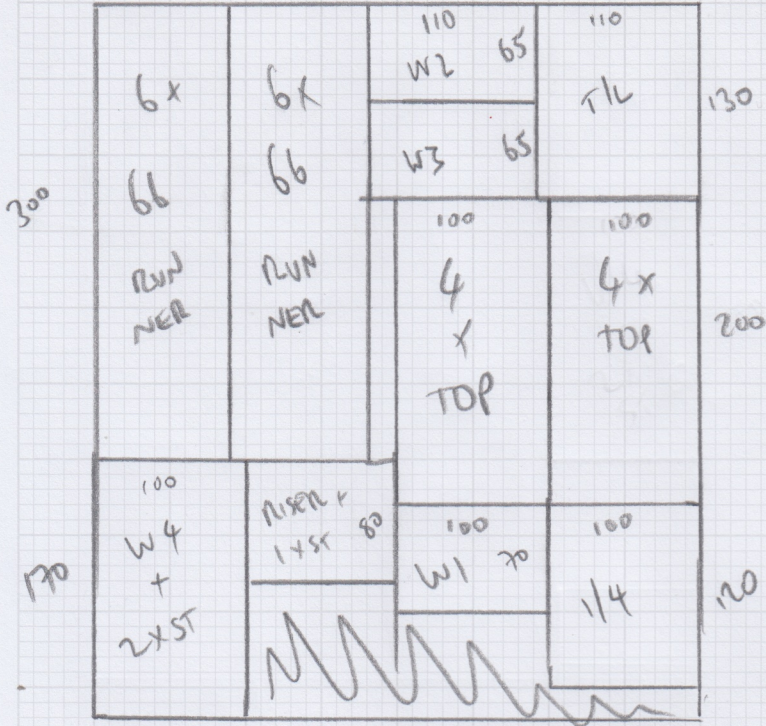 300
6x
66
RUN
NER
6x
66
RUN
NER
110
W2 65
W3 65
110
T/L
130
100
4
x
TOP
100
4x
TOP
200
170
100
W4
+
2xST
RISER +
1xST 80
100
W1 70
100
1/4
120